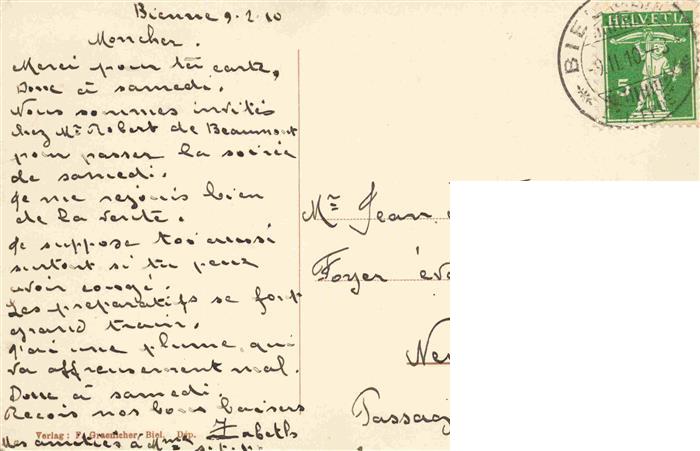 Bienne 9.2.10
Moncher.
Merci pour ta carte,
Donc à samedi.
Nous sommes invités
chez Mr Robert de Beaumont
pour passer la soirée
de samedi.
Je me rejouis bien
de la
Je suppose toi aussi
surtout si tu peux
avoir congé.
Les préparatifs se font
grand train.
J'ai une plume qui
va affreusement mal.
Donc à samedi.
Reçois nos bons baisers
Zabeth
Mes amitiés à Mme
Verlag: F. Graenicher, Biel. Dép.
HELVETIA
5
BIE
9.II.10
Mr Jean
Foyer éva
Ne
Passag